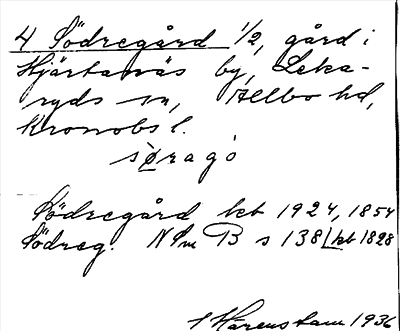 4 Södregård 1/2, gård i
Hjärtanäs by, Leka-
ryds sn, Allbo hd,
Kronobs l.
sø̱ragó
Södregård kb 1924, 1854
Södreg. NSm B s 138 kb 1828
I Härenstam 1936